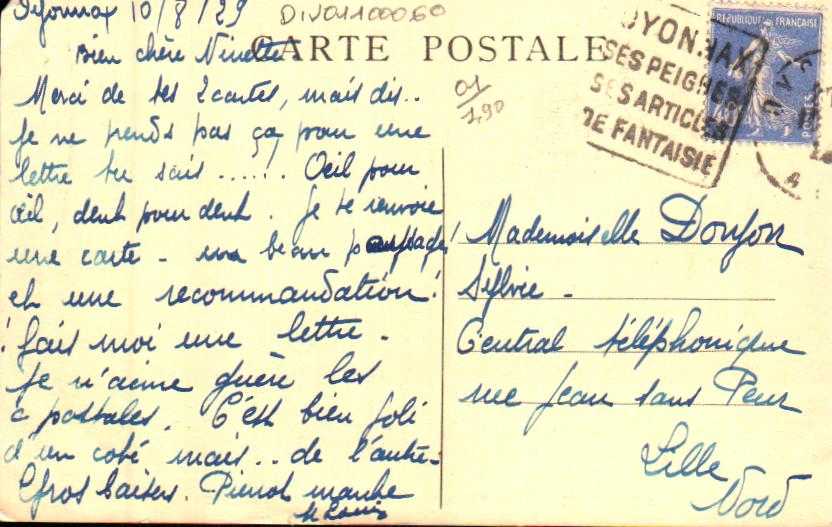 Oyonnax 10/8/29
DIV01100060
CARTE POSTALE
Bien chère Ninette
Merci de tes 2 cartes, mais dis..
je ne prends pas ça pour une
lettre tu sais ......! Oeil pour
œil, dent pour dent. Je te renvoie
une carte - un beau paysage!
et une recommandation!
! fais moi une lettre.
Je n'aime guère les
c postales. C'est bien joli
d'un coté mais.. de l'autre.
Gros baisers. Pierrot manche
St Louis
01/190
OYONNAX
SES PEIGNES
SES ARTICLES
DE FANTAISIE
REPUBLIQUE FRANÇAISE
POSTES
Mademoiselle Donjon
Sylvie -
Central téléphonique
rue Jean sans Peur
Lille
Nord